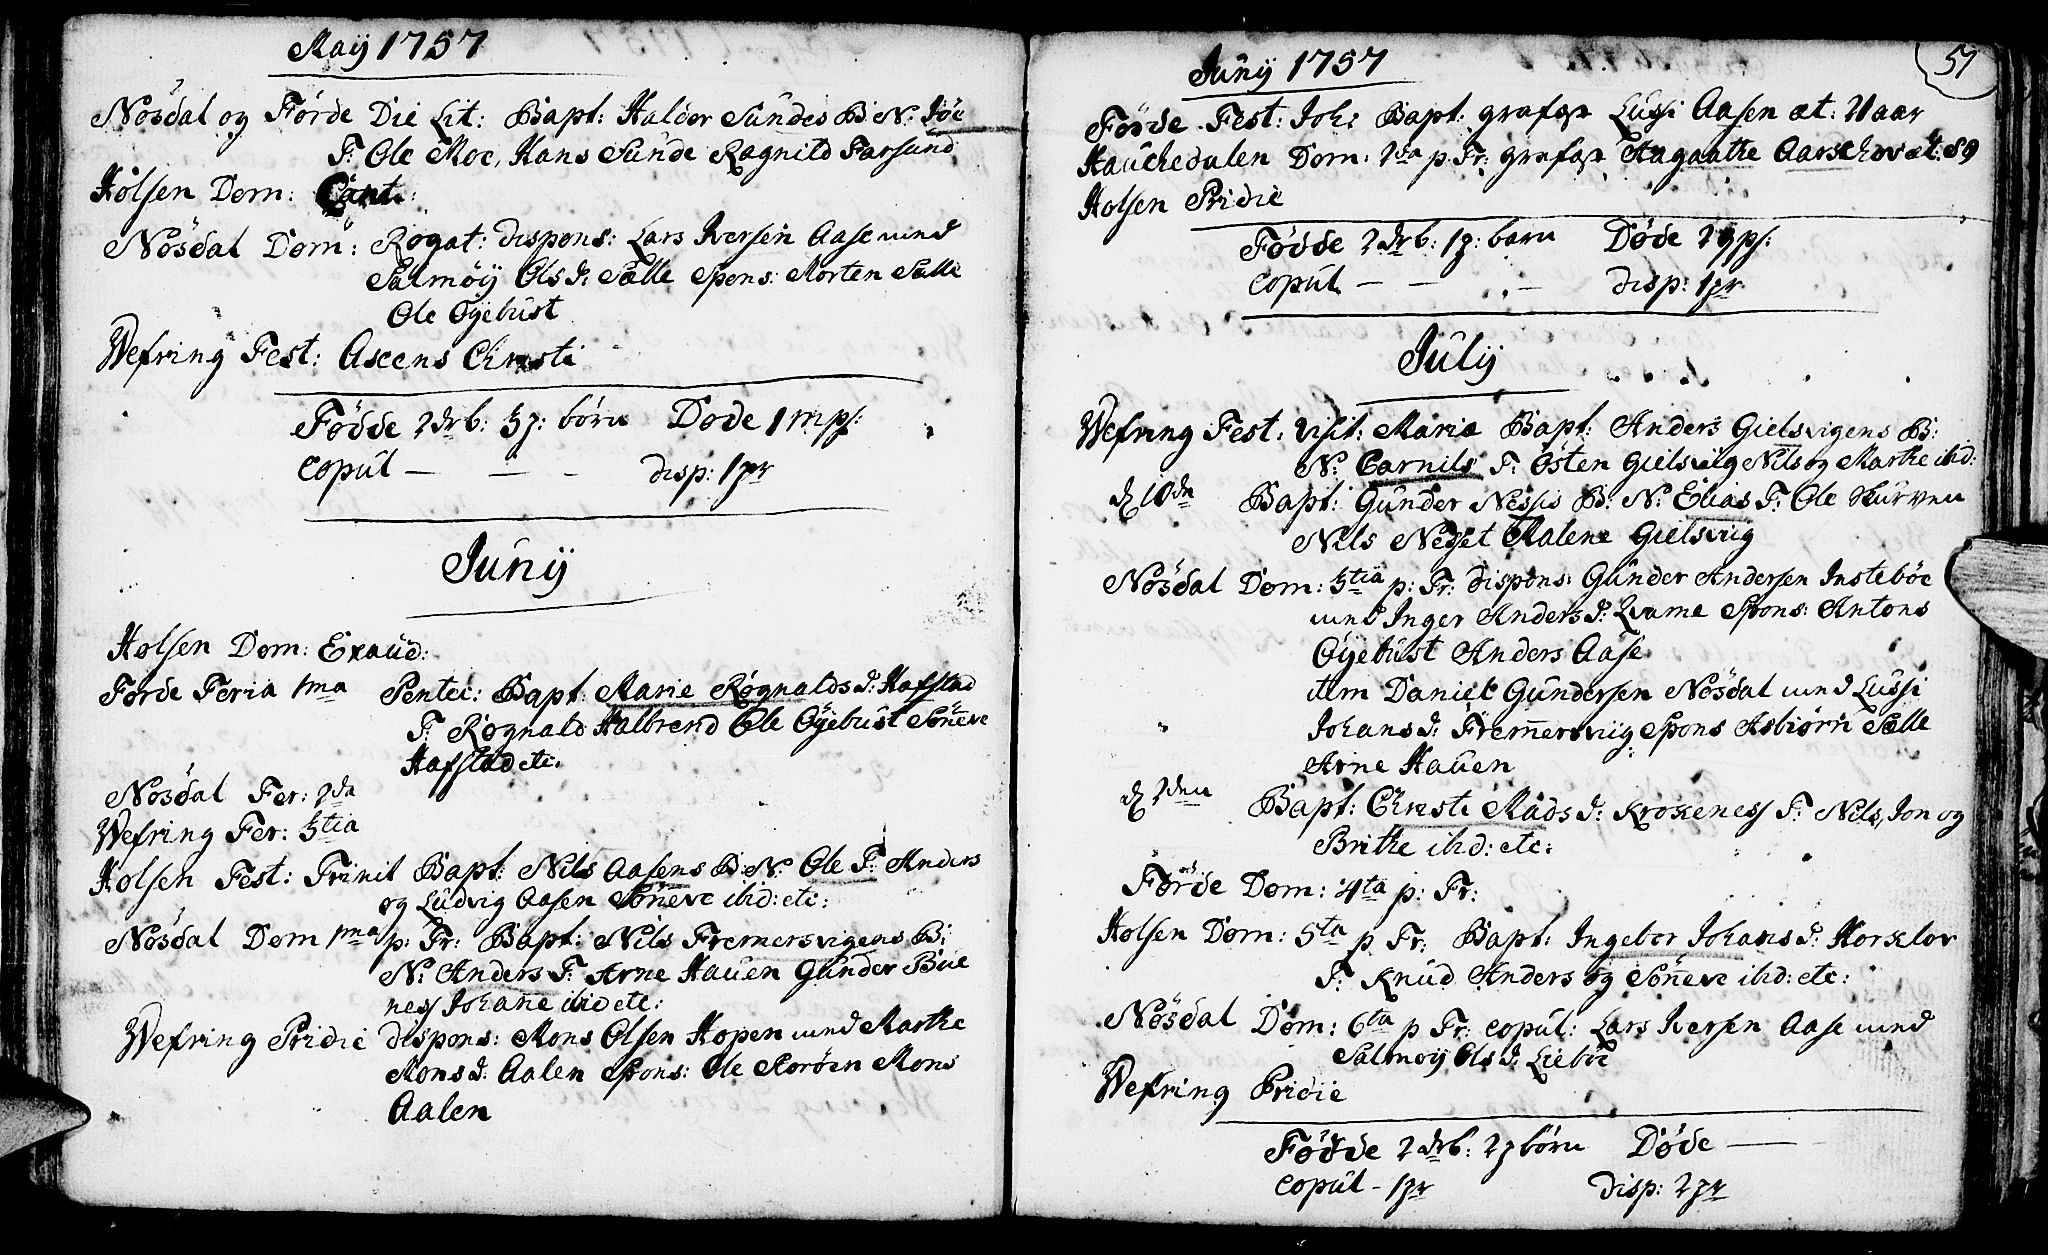 Maÿ 1757
Nøsdal og Førde Die Lit: Bapt: Haldor Sundes B: N: Joe
F: Ole Moe, Hans Sunde Ragnild Farsund
Holsen Dom: Cant:
Nøsdal Dom: Rogat: dispons: Lars Iversen Aase und
Salmøÿ Ols d: Sælle Spons: Morten Sælle
Ole Øÿebust
Wefring Fest: Ascens Christi
Fødde 2 drb: 3 p: børn Døde 1 mps:
Copul — — - disp: 1 pr
Junÿ
Holsen Dom: Exaud:
Førde Feria 1ma Pentec: Bapt: Marie Rognalds d: Hafstad
F: Rognald Halbrend Ole Øÿebust Søneve
Hafstad etc:
Nøsdal Fer: 2da
Wefring Fer: 3tia
Holsen Fest: Trinit Bapt: Nils Aasens B: N: Ole F: Anders
og Ludvig Aasen Søneve ibid: etc:
Nøsdal Dom 1ma p: Tr: Bapt: Nils Fremersvigens B:
N: Anders F: Arne Hauen Gunder Bue
nes Johane ibid etc:
Wefring Pridie dispons: Mons Olsen Hopen und Marthe
Mons d: Aalen Spons: Ole Storøen Mons
Aalen
Junÿ 1757
57
Førde Fest: Joh: Bapt: grafæst Lussi Aasen æt: 2 1 aar
Hauchedalen Dom: 2da p Tr: grafæst Aagaathe Aarschov æt: 89
Holsen Pridie
Fødde 2 drb: 1 p: barn Døde 2 qps:
Copul — — — disp: 1 pr
Julÿ
Wefring Fest: Visit: Mariæ Bapt: Anders Gielsvigens B:
N: Carnils F: Østen Gielsviig Nils og Marthe ibid:
d 10de Bapt: Gunder Nessis B: N: Elias F: Ole Kurven
Nils Nesset Malene Gielsviig
Nøsdal Dom: 3tia p: Tr: dispons: Gunder Andersen Instebøe
und Inger Anders d: Qvame Spons: Antons
Øÿebust Anders Aase
item Daniel Gundersen Nøsdal und Lussi
Johans d: Fremersviig Spons Asbiørn Sælle
Arne Hauen
d 2den Bapt: Christi Mads d: Krokenes F: Nils, Jon og
Brithe ibid: etc:
Førde Dom: 4ta p: Tr:
Holsen Dom: 5ta p Tr: Bapt: Ingebor Johans d: Horsclov
F: Knud Anders og Søneve ibid: etc:
Nøsdal Dom: 6ta p Tr: Copul: Lars Iversen Aase und
Salmøÿ Ols d: Liebøe
Wefring Pridie
Fødde 2 drb: 2 p børn Døde —
Copul - 1 pr disp: 2 pr